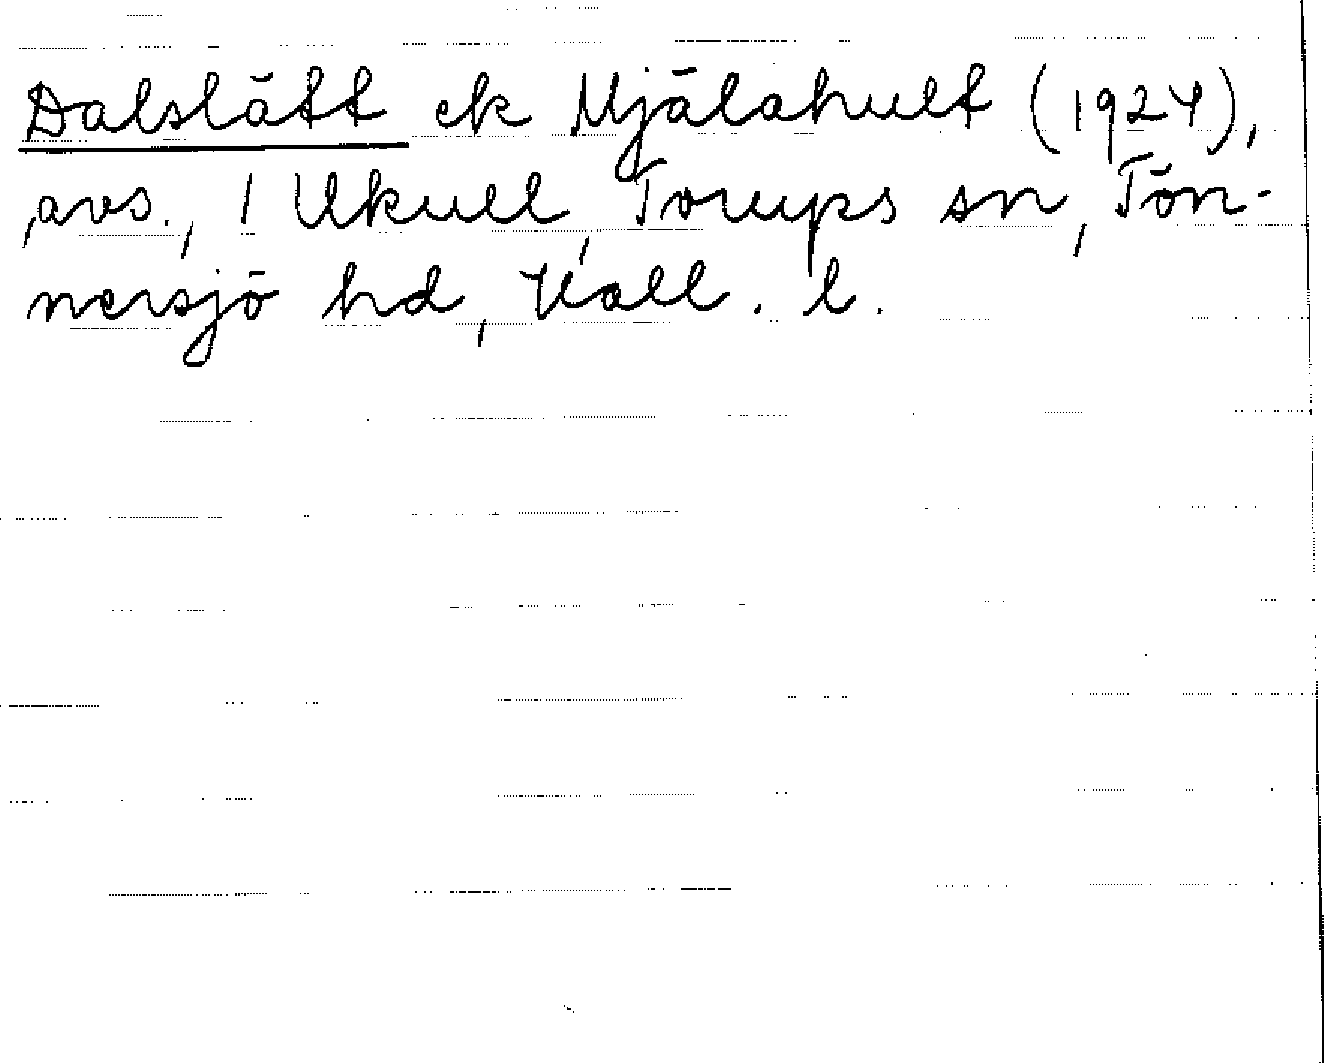 Dalslätt ek Mjälahult (1924),
avs., 1 Ukull, Torups sn, Tön-
nersjö hd, Hall. l.